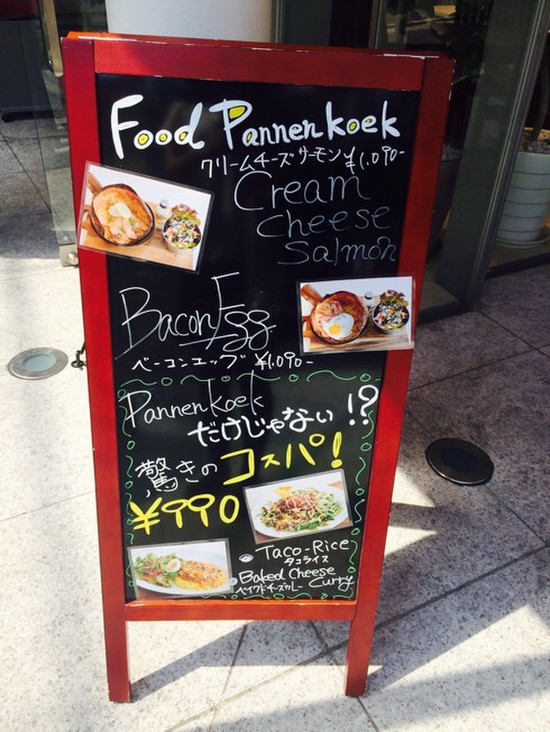 Food Pannenkoek
クリームチーズサーモン ¥1,090-
Cream
cheese
Salmon
Bacon Egg
ベーコンエッグ ¥1,090-
Pannenkoek
だけじゃない!?
驚きのコスパ!
¥990
Taco-Rice
タコライス
Baked Cheese
ベイクドチーズカレー Curry